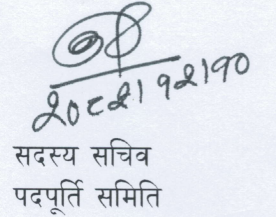 २०८२।१२।१०
सदस्य सचिव
पदपूर्ति समिति